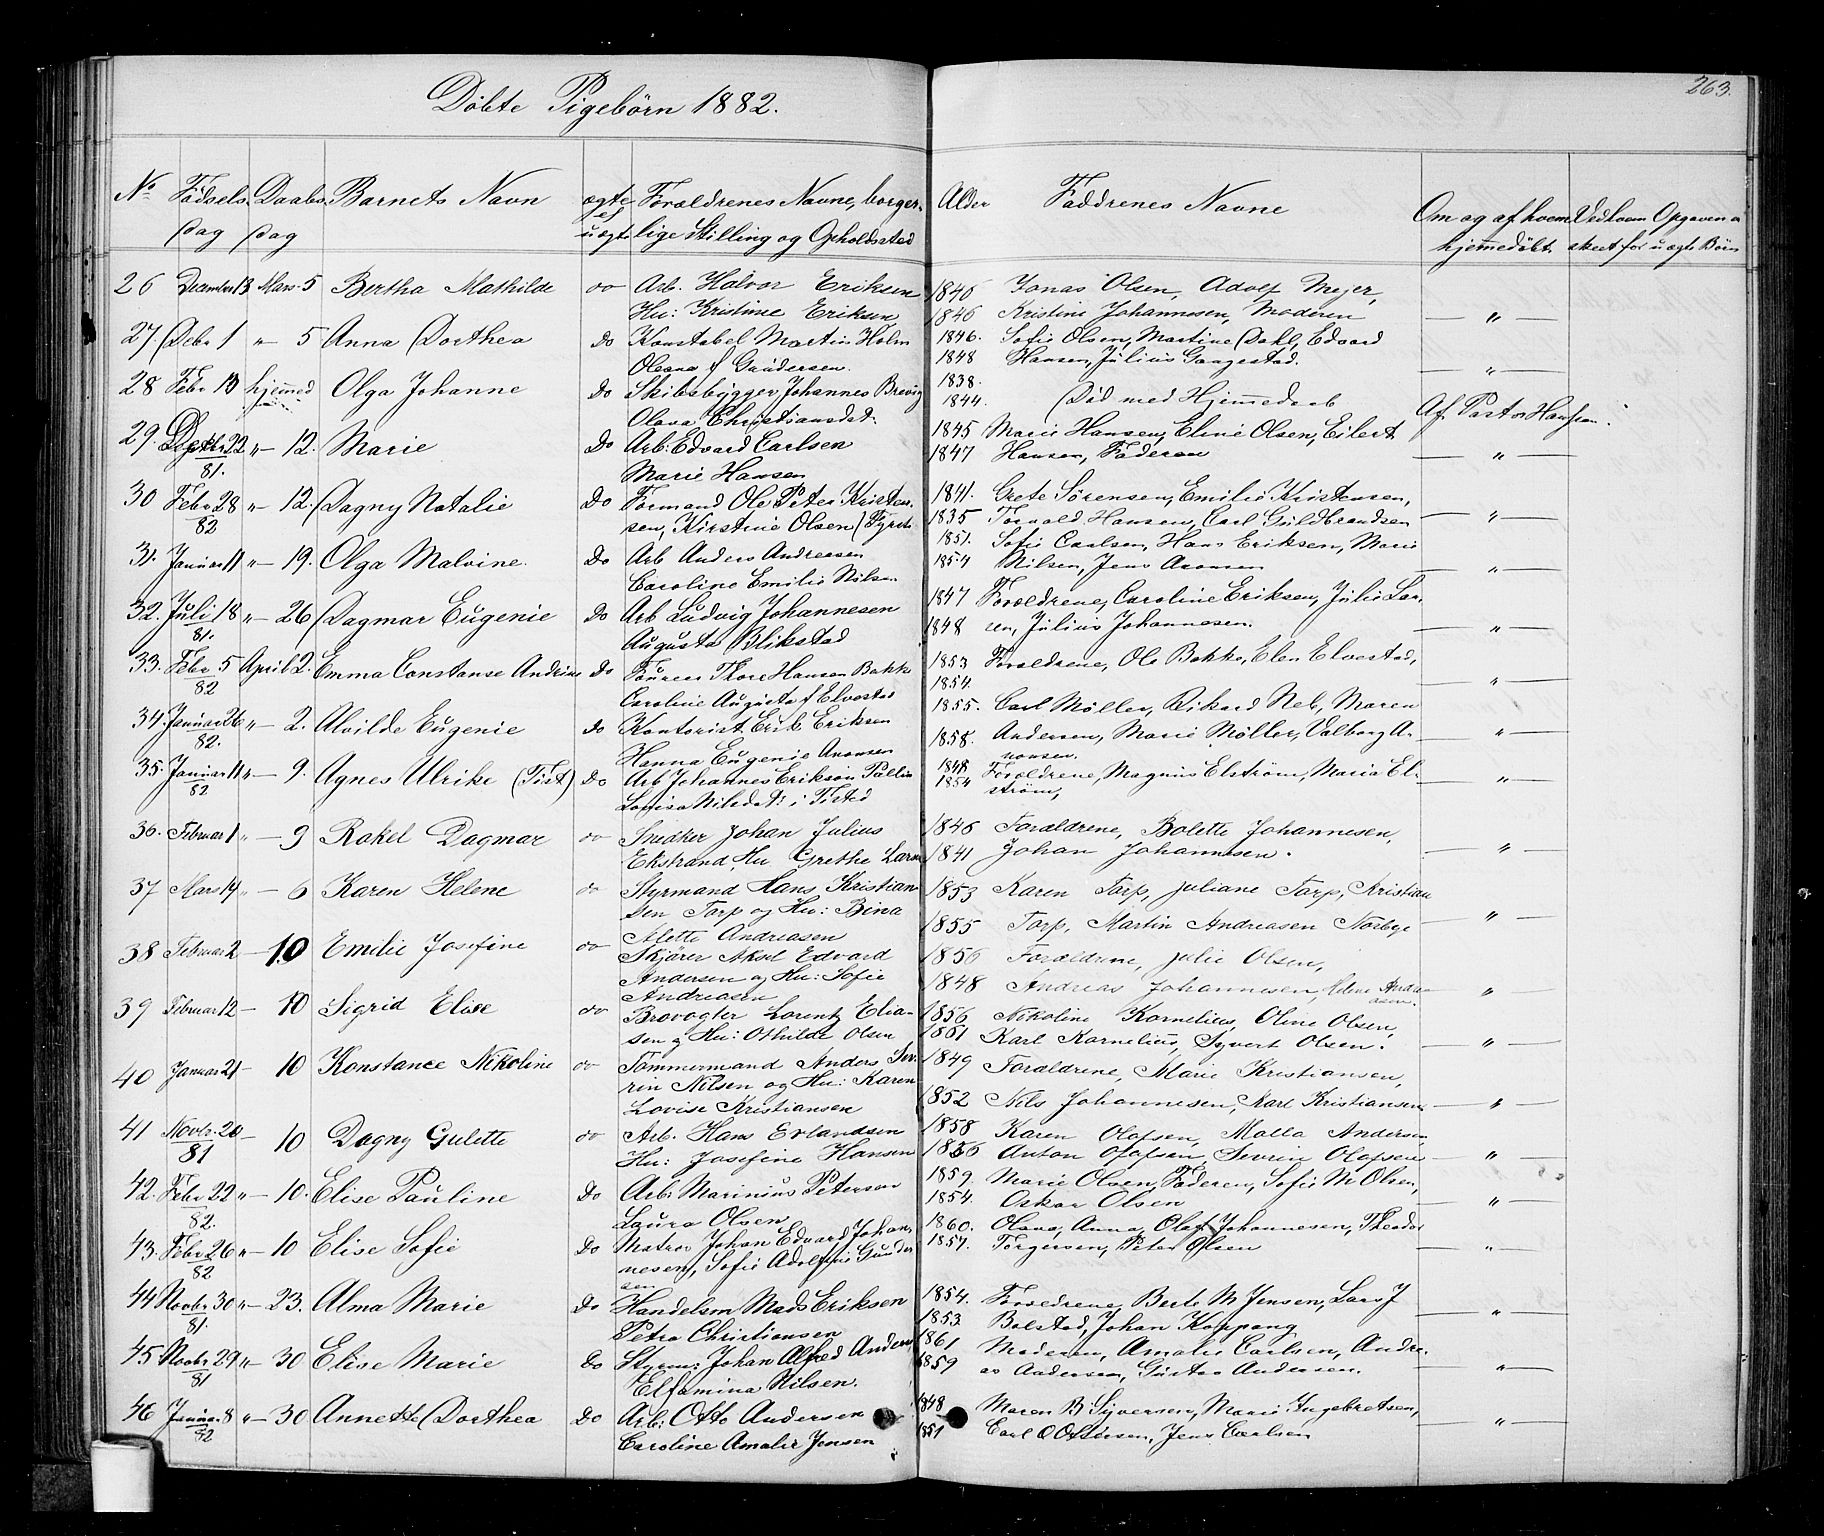 263.
Döbte Pigebörn 1882.
No Födsels Daabs Barnets Navn ægte Forældrenes Navne, borger- Alder Faddrenes Navne Om og af hvem Ved hvem Opgaven er
Dag Dag ej uægte lige Stilling og Opholdssted hjemmedöbt. skeet for uægte Börn
26 December 13 Mars 5 Bertha Mathilde do Arb. Halvor Eriksen 1845 Jonas Olsen, Adolf Mejer,
Hu: Kristine Eriksen 1846 Kristine Johannesen, Moderen — „ —
27. Debr 1 „ 5 Anna Dorthea Do Konstabel Martin Holm 1846. Sofie Olsen, Martine Dahl, Edvard
Oleana f Gundersen. 1848 Hansen, Julius Gaagestad. — „ —
28 Febr 13 hjemmed Olga Johanne Do Skibsbygger Johannes Brevig 1838.
Olava Christiansdt: 1844. Död med Hjemmedaab Af Pastor Hansson.
29. 22 „ — 12. Marie Do Arb: Edvard Carlsen 1845 Marie Hansen, Eline Olsen, Eilert
81. Marie Hansen 1847 Hansen, Faderen — „ —
30 Febr 28 „ — 12. Dagny Natalie Do Formand Ole Peter Kristen- 1841. Grete Sörensen, Emilie Kristensen,
82 sen, Kirstine Olsen 1835 Torvald Hansen, Carl Guldbrandsen — „ —
31. Januar 11 „ — 19. Olga Malvine. Do Arb Anders Andreasen 1851. Sofie Carlsen, Hans Eriksen, Marie
Caroline Emilie Nilsen 1854 Nilsen, Jens Aronsen — „ —
32. Juli 18 „ — 26 Dagmar Eugenie Do Arb Ludvig Johannesen 1847 Forældrene, Caroline Eriksen, Julie Lar-
81. Augusta Blikstad 1848 sen, Julius Johannesen. — „ —
33. Febr 5 April 2. Emma Constanse Andrine Do Thore Hansen Bakke 1853 Forældrene, Ole Bakke, Elen Elvestad,
82 Caroline Augusta f Elvestad 1854. — „ —
34. Januar 26 „ — 2. Alvilde Eugenie Do Kontorist Erik Eriksen 1855. Carl Möller, Rikard Neb, Maren
82. Hanna Eugenie Aronsen 1858. Andersen, Marie Möller, Valborg A-
ronsen. — „ —
35. Januar 11 „ — 9. Agnes Ulrike (Tist) Do Arb Johannes Erikson Pallin 1848 Forældrene, Magnus Elström, Maria El-
82 Lovisa Nilsdt: i Tisted 1854 ström, — „ —
36. Februar 1 „ — 9 Rakel Dagmar do Snedker Johan Julius 1846 Forældrene, Bolette Johannesen,
Ekstrand, Hu Grethe Larsen 1841 Johan Johannesen. — „ —
37 Mars 19 „ — 6 Karen Helene do Styrmand Hans Kristian- 1853 Karen Tarp, Juliane Tarp, Kristian
sen Tarp og Hu: Bina 1855 Tarp, Martin Andreasen Norbye — „ —
Alette Andreasen
38 Februar 2 — 10 Emilie Josefine do Skjörer Aksel Edvard 1856 Forældrene, Julie Olsen,
Andersen og Hu: Sofie 1848 Andreas Johannesen, Helene Andre-
Andreasen asen. — „ —
39 Februar 12 — 10 Sigrid Elise do Brovogter Lorentz Elia- 1856 Nikoline Kornelius, Oline Olsen,
sen og Hu: Othilde Olsen 1861 Karl Kornelius, Syvert Olsen. — „ —
40 Januar 21 — 10 Konstance Nikoline do Tömmermand Anders Sev- 1849 Forældrene, Marie Kristiansen,
rin Nilsen og Hu: Karen
Lovise Kristiansen 1852 Nils Johannesen, Karl Kristiansen — „ —
41 Novbr. 20 — 10 Dagny Gulette do Arb. Hans Erlandsen 1858 Karen Olafsen, Malla Andersen
81 Hu: Josefine Hansen 1856 Anton Olafsen, Sevrin Olafsen — „ —
42. Febr 22 „ — 10. Elise Pauline Do Arb: Marinius Petersen 1859. Marie Olsen, Faderen, Sofie M Olsen,
82. Laura Olsen 1854. Oskar Olsen — „ —
43. Febr 26 „ — 10 Elise Sofie Do Matros Johan Edvard Johan- 1860. Olava, Anna, Olaf Johannesen, Theodor
82 nesen, Sofie Adolfine Gunder- 1857. Torgersen, Peter Olsen — „ —
sen
44 Novbr 30 „ — 23. Alma Marie Do Handelsm Mads Eriksen 1854. Forældrene, Berte M Jensen, Lars J
81. Petra Christiansen 1853 Bolstad, Johan Koppang — „ —
45 Novbr 29 „ — 30 Elise Marie Do Styrm: Johan Alfred Anders 1861 Moderen, Amalie Carlsen, Andre-
81 Elfamina Nilsen. 1859 as Andersen, Gustav Andersen. — „ —
46 Januar 8 „ — 30 Annette Dorthea Do Arb: Otto Andersen 1848 Maren B Syversen, Marie Ingebretsen,
82 Caroline Amalie Jensen 1851 Carl O Ottersen, Jens Carlsen — „ —